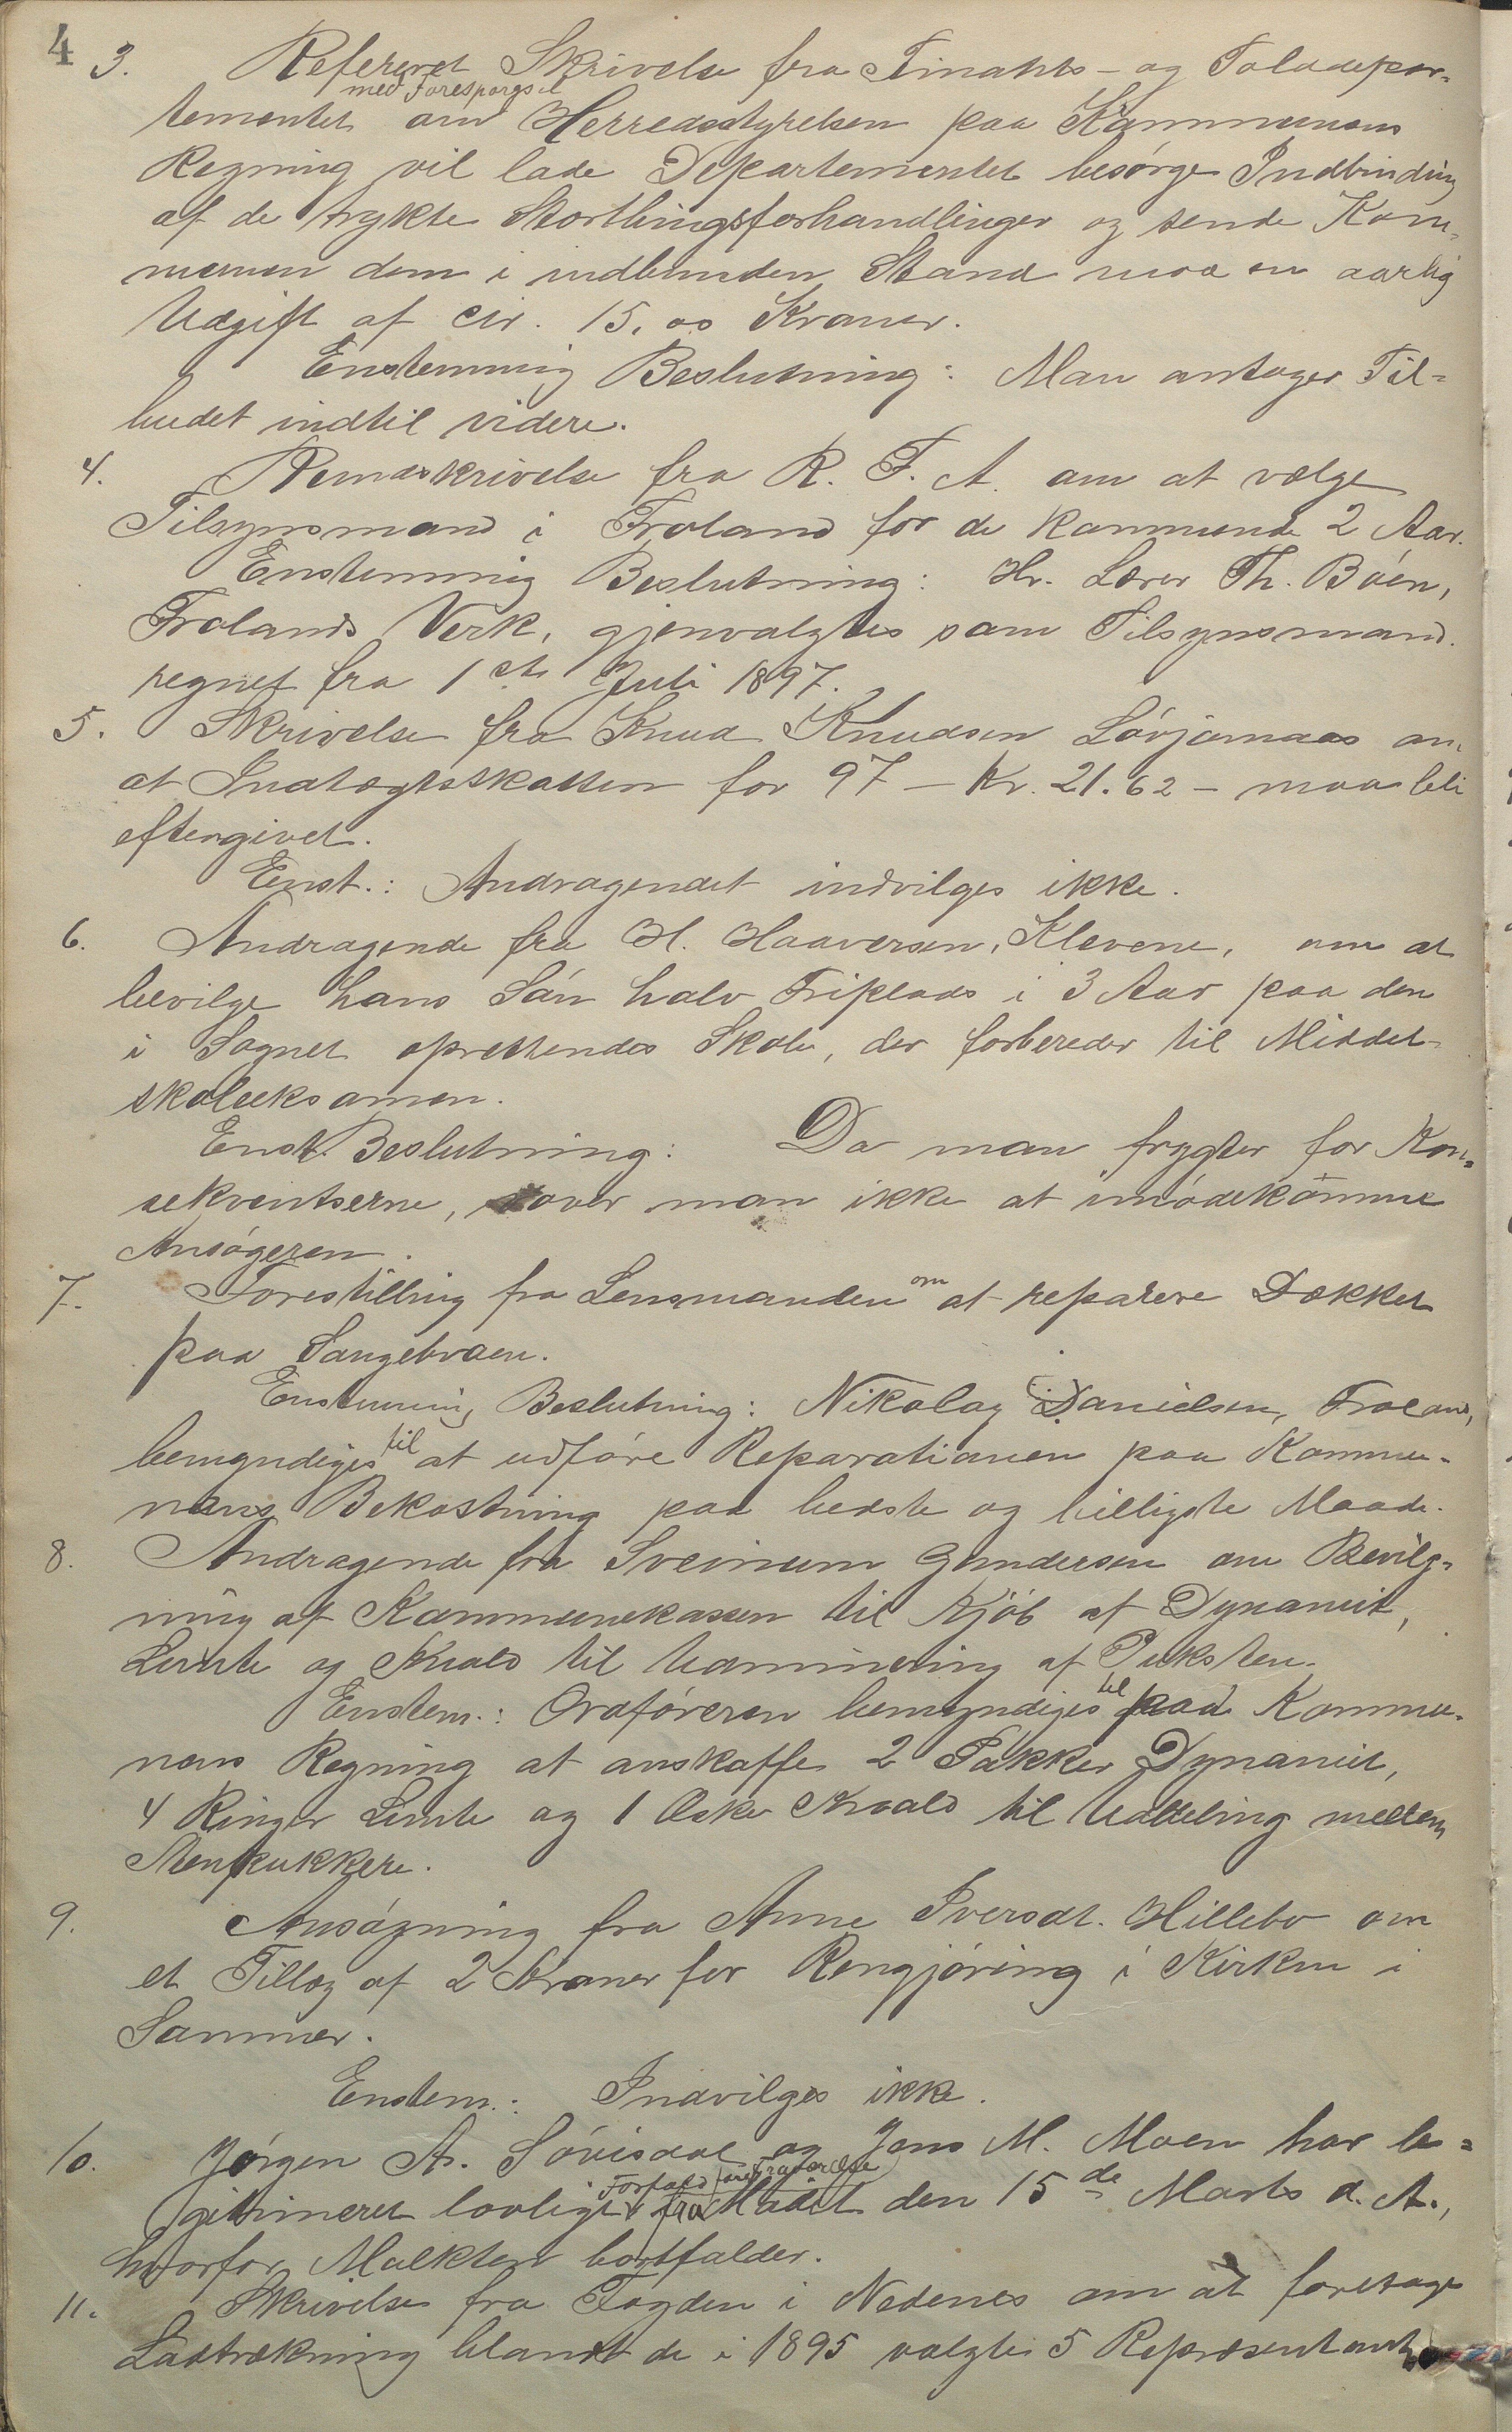 4
3. Refereret Skrivelse fra Finants- og Tolddepar-
med Forespørgsel
tementet om Herredsstyrelsen paa Kommunens
Regning vil lade Departementet besørge Indbinding
af de trykte Storthingsforhandlinger og sende Kom-
munen dem i indbunden Stand mod en aarlig
Udgift af cir. 15,00 Kroner.
Enstemmig Beslutning: Man antager Til-
budet indtil videre.
4. Rundskrivelse fra R. F. A. om at vælge
Tilsynsmand i Froland for de kommende 2 Aar.
Enstemmig Beslutning: Hr. Lærer Th. Bøen,
Frolands Verk, gjenvalgtes som Tilsynsmand
regnet fra 1ste Juli 1897.
5. Skrivelse fra Knud Knudsen Løvjomaas om
at Indtægtsskatten for 97 – Kr. 21.62 – maa bli
eftergivet.
Enst.: Andragendet indvilges ikke.
6. Andragende fra H. Haaversen, Klevene, om at
bevilge hans Søn halv Friplads i 3 Aar paa den
i Sognet oprettendes Skole, der forbereder til Middel-
skoleeksamen.
Enst. Beslutning: Da man frygter for Kon-
sekventserne, vover man ikke at imødekomme
Ansøgeren.
7. Forestilling fra Lensmanden om at reparere Dækket
paa Songebroen.
Enstemmig Beslutning: Nikolay Danielsen, Froland,
bemyndiges til at udføre Reparationen paa Kommu-
nens Bekostning paa bedste og billigste Maade.
8. Andragende fra Sveinum Gundersen om Bevilg-
ning af Kommunekassen til Kjøb af Dynamit,
Lunte og Knald til Udminering af Puksten.
Enstem.: Ordføreren bemyndiges til paa Kommu-
nens Regning at anskaffe 2 Pakker Dynamit,
4 Ringer Lunte og 1 Æske Knald til Uddeling mellem
Stenpukkere.
9. Ansøgning fra Anne Iversdt. Hillebo om
et Tillæg af 2 Kroner for Rengjøring i Kirken i
Sommer.
Enstem.: Indvilges ikke.
10. Jørgen A. Løvisdal og Jens M. Moen har le-
Forfald for Fraværelse
gitimeret lovligt fra Mødet den 15de Marts d. A.,
hvorfor Mulkten bortfalder.
11. Skrivelse fra Fogden i Nedenes om at foretage
Lodtrækning blandt de i 1895 valgte 5 Repræsentant